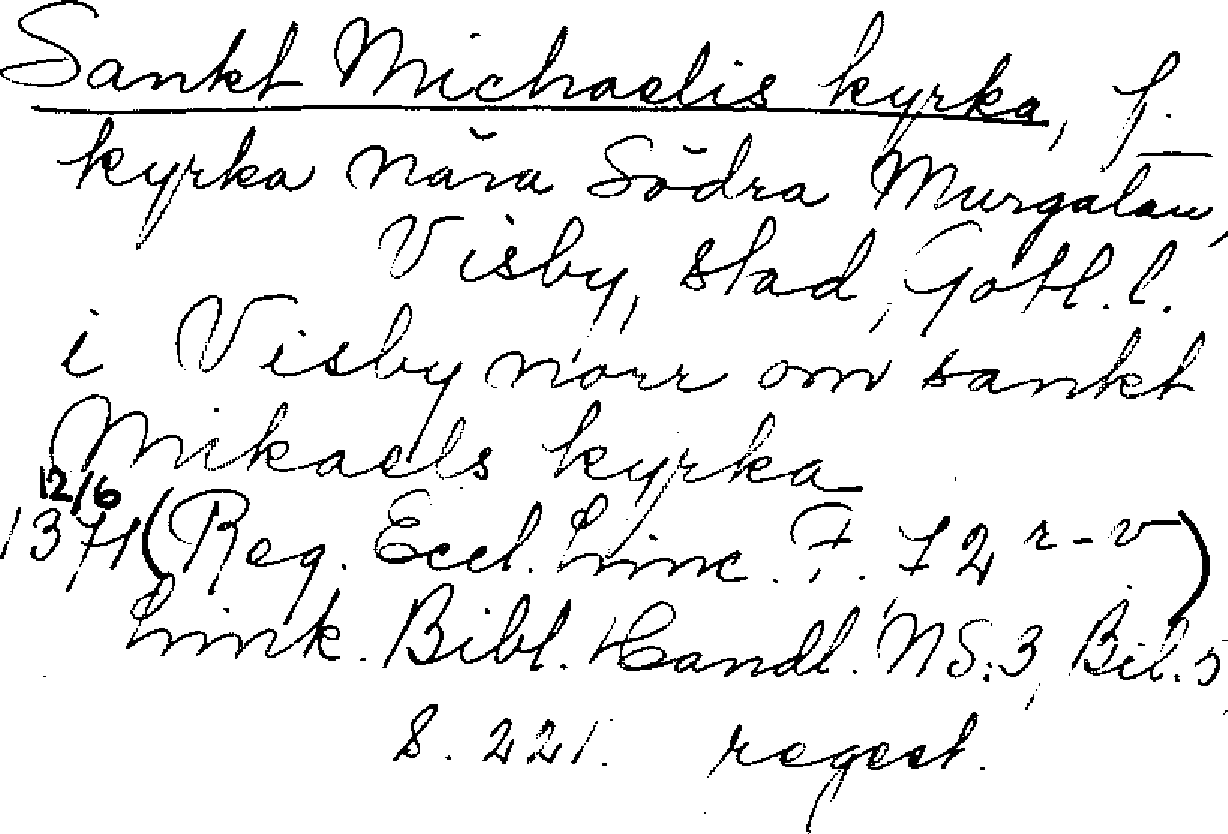 Sankt Michaelis kyrka, f.
kyrka nära Södra Murgatan,
Visby, stad, Gotl. l.
i Visby norr om sankt
Mikaels kyrka
12/6
1371 (Reg. Eccl. Linc. F. 72 r-v)
Link. Bibl. Handl. NS:3, Bil. 5
s. 221. regest.